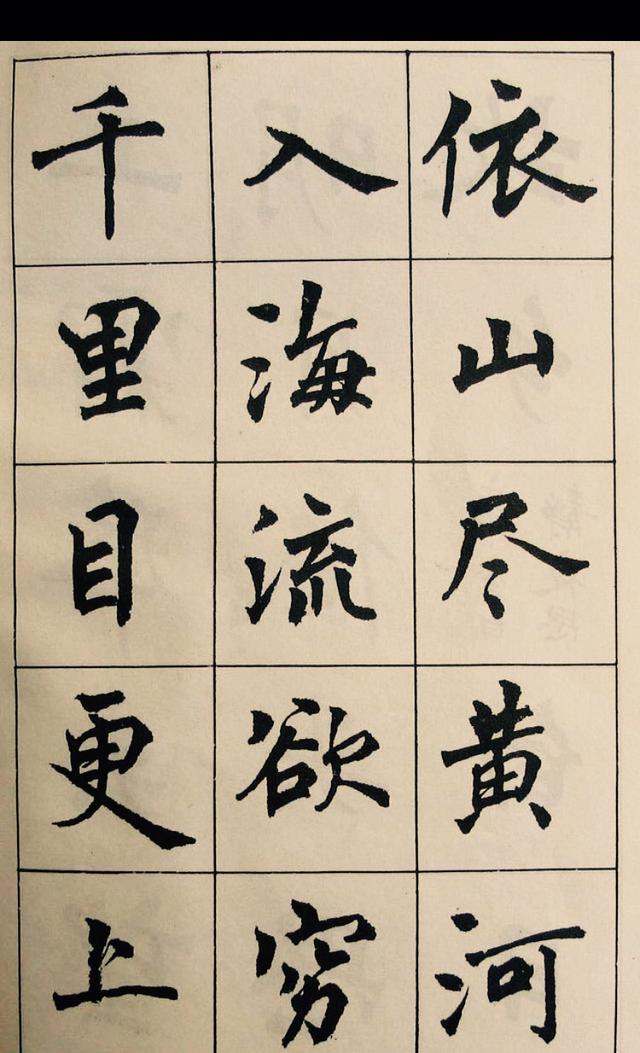 依山尽黄河
入海流欲穷
千里目更上